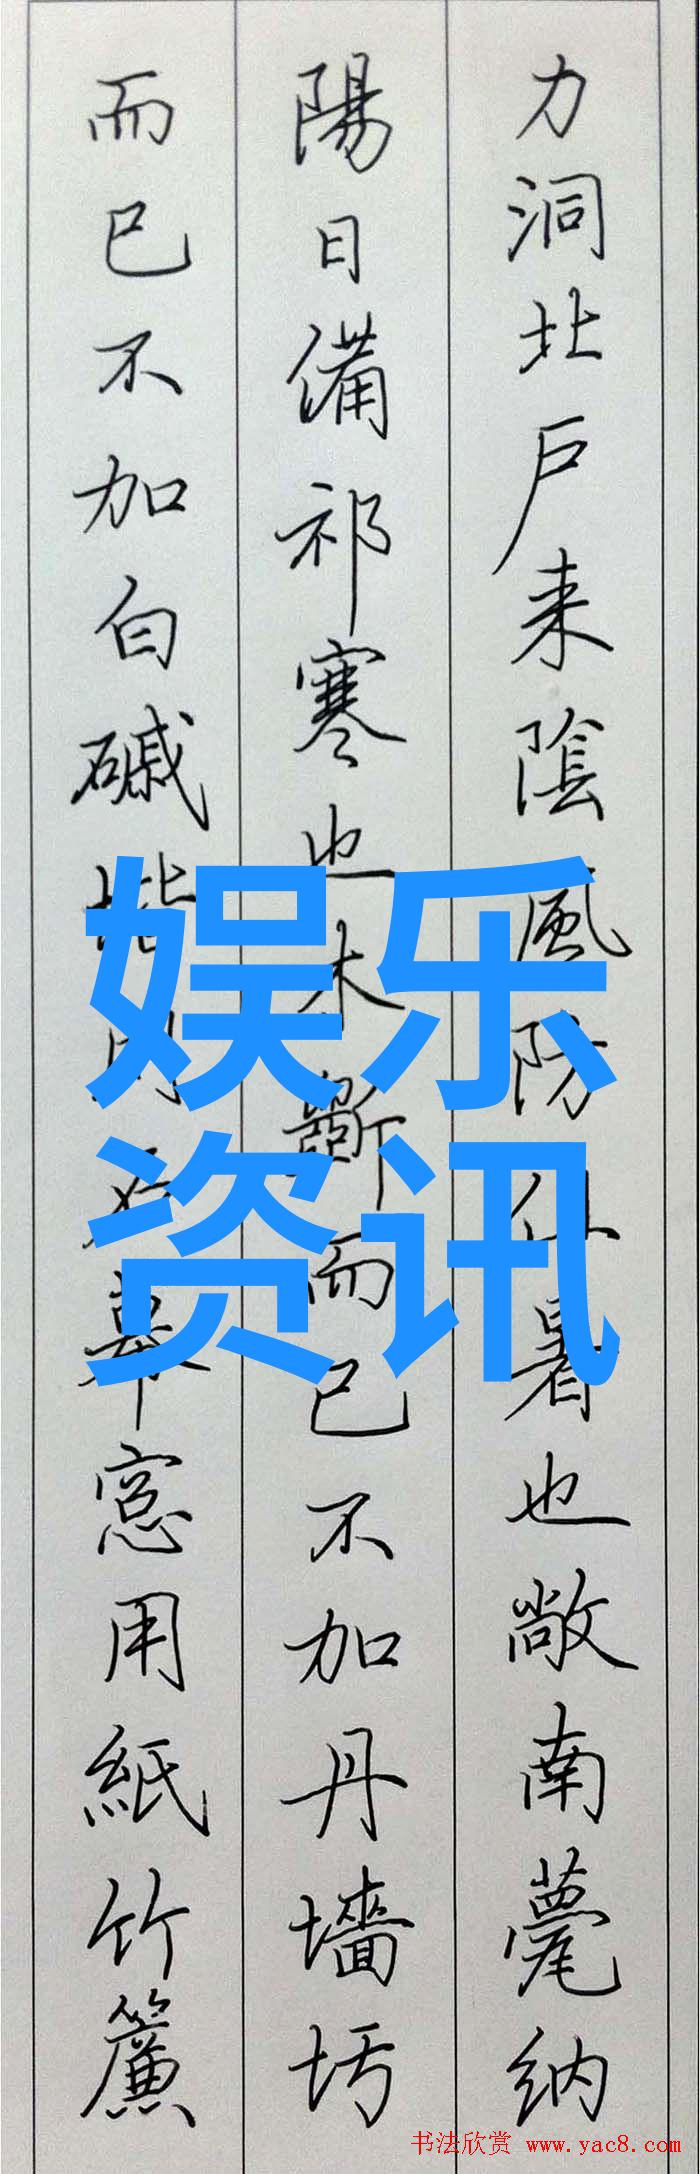 力洞北户来陰風防徂暑也敞南甍纳
陽日備祁寒也木斲而已不加丹墻圬
而已不加白磩堦用石幕窓用紙竹簾
娱乐
资讯
书法欣赏 www.yac8.com